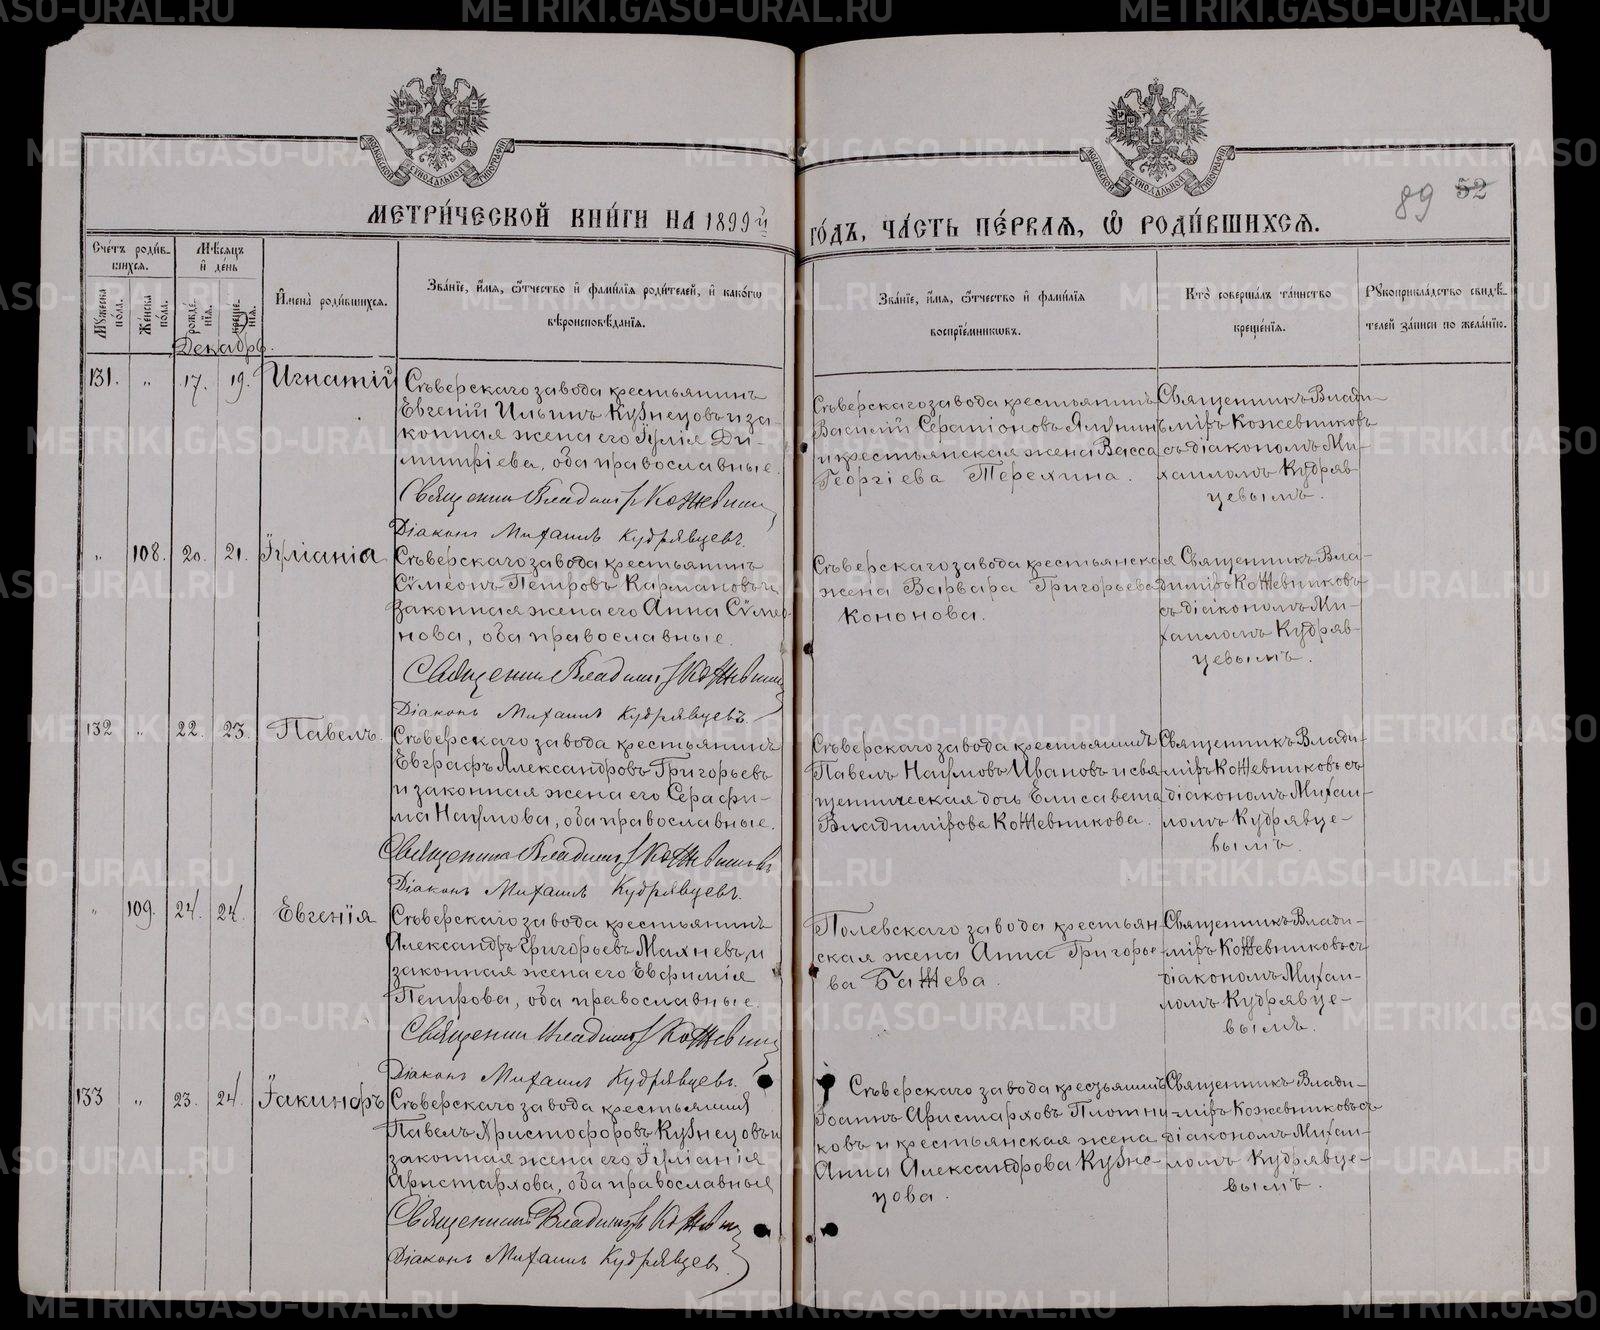 МЕТРИ́ЧЕСКОЙ КНИ́ГИ НА 1899й
ГО́ДЪ, ЧА́СТЬ ПЕ́РВАѦ, Ѡ҆ РОДИ́ВШИХСѦ.
89 52
Счётъ роди́в-
шихсѧ.
Мѣ́сѧцъ
и҆ де́нь
Мꙋ́жеска по́ла.
Же́нска по́ла.
рожде́нїѧ.
креще́нїѧ.
И҆мена̀ роди́вшихсѧ.
Зва́нїе, и҆́мѧ, ѻ҆́тчество и҆ фами́лїѧ роди́телей, и҆ како́гѡ
вѣроисповѣ́данїѧ.
Зва́нїе, и҆́мѧ, ѻ҆́тчество и҆ фами́лїѧ
воспрїе́мникѡвъ.
Кто̀ соверша́лъ та́инство
креще́нїѧ.
Рꙋкоприкла́дство свидѣ́-
телей за́писи по жела́нїю.
Декабрь.
131. „ 17. 19. Игнатій
Сѣверскаго завода крестьянинъ
Евгеній Ильинъ Кузнецовъ и за-
конная жена его Іулія Ди-
митріева, оба православные.
Священникъ Владиміръ Кожевниковъ
Діаконъ Михаилъ Кудрявцевъ.
Сѣверскаго завода крестьянинъ
Василій Серапіоновъ Ялунинъ
и крестьянская жена Васса
Георгіева Терехина.
Священникъ Влади-
міръ Кожевниковъ
съ діакономъ Ми-
хаиломъ Кудряв-
цевымъ.
„ 108. 20. 21. Іуліанія
Сѣверскаго завода крестьянинъ
Сѵмеонъ Петровъ Кармановъ и
законная жена его Анна Сѵмео-
нова, оба православные.
Священникъ Владиміръ Кожевниковъ
Діаконъ Михаилъ Кудрявцевъ.
Сѣверскаго завода крестьянская
жена Варвара Григорьева
Кононова.
Священникъ Вла-
диміръ Кожевниковъ
съ діакономъ Ми-
хаиломъ Кудряв-
цевымъ.
132 „ 22. 23. Павелъ.
Сѣверскаго завода крестьянинъ
Евграфъ Александровъ Григорьевъ
и законная жена его Серафи-
ма Наумова, оба православные.
Священникъ Владиміръ Кожевниковъ
Діаконъ Михаилъ Кудрявцевъ.
Сѣверскаго завода крестьянинъ
Павелъ Наумовъ Ивановъ и свя-
щенническая дочь Елисавета
Владимірова Кожевникова.
Священникъ Влади-
міръ Кожевниковъ съ
діакономъ Михаи-
ломъ Кудрявце-
вымъ.
„ 109. 24. 24. Евгенія
Сѣверскаго завода крестьянинъ
Александръ Григорьевъ Махневъ, и
законная жена его Евфимія
Петрова, оба православные.
Священникъ Владиміръ Кожевниковъ
Діаконъ Михаилъ Кудрявцевъ.
Полевскаго завода крестьян-
ская жена Анна Григорье-
ва Бажева.
Священникъ Влади-
міръ Кожевниковъ съ
діакономъ Михаи-
ломъ Кудрявце-
вымъ.
133 „ 23. 24. Іакинфъ
Сѣверскаго завода крестьянинъ
Павелъ Христофоровъ Кузнецовъ и
законная жена его Іуліанія
Аристархова, оба православные
Священникъ Владиміръ Кожевниковъ
Діаконъ Михаилъ Кудрявцевъ.
Сѣверскаго завода крестьянинъ
Іоаннъ Аристарховъ Плотни-
ковъ и крестьянская жена
Анна Александрова Кузне-
цова.
Священникъ Влади-
міръ Кожевниковъ съ
діакономъ Михаи-
ломъ Кудрявце-
вымъ.
METRIKI.GASO-URAL.RU